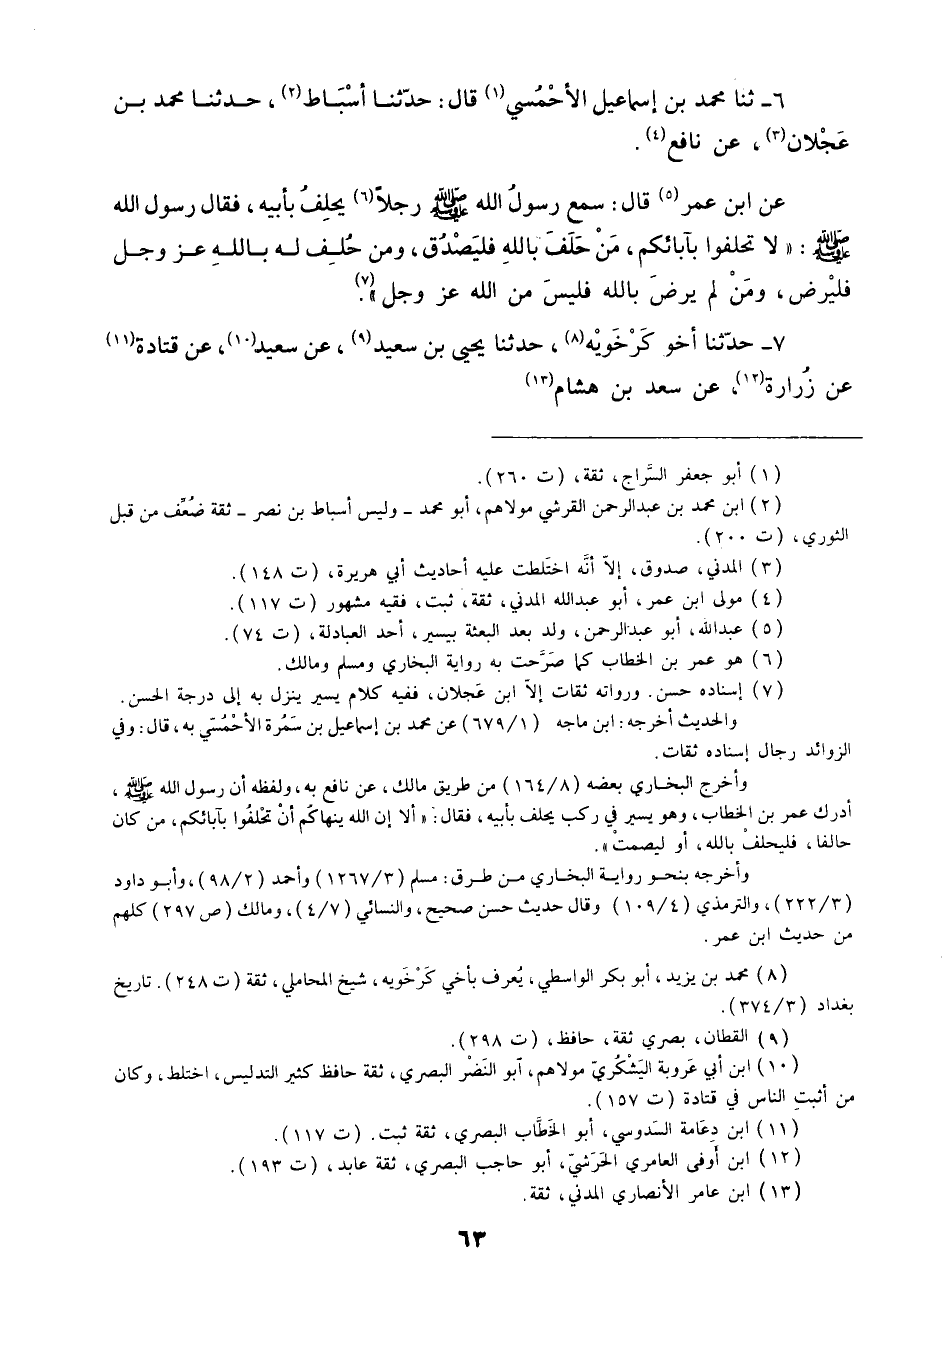 ٦ـ ثنا محمد بن إسماعيل الأحْمُسي(١) قال: حدّثنا أسْبَاط(٢)، حدثنا محمد بن
عَجْلان(٣)، عن نافع(٤).
عن ابن عمر(٥) قال: سمع رسولُ الله ﷺ رجلاً(٦) يحلِفُ بأبيه، فقال رسول الله
ﷺ: «لا تحلفوا بآبائكم، مَنْ حَلَفَ بالله فليَصْدُق، ومن حُلِف له باللهِ عز وجل
فليْرض، ومَنْ لم يرضَ بالله فليسَ من الله عز وجل»(٧).
٧ـ حدّثنا أخو كَرْخَويْه(٨)، حدثنا يحيى بن سعيد(٩)، عن سعيد(١٠)، عن قتادة(١١)
عن زُرارة(١٢)، عن سعد بن هشام(١٣)
(١) أبو جعفر السَّراج، ثقة، (ت ٢٦٠).
(٢) ابن محمد بن عبدالرحمن القرشي مولاهم، أبو محمد ـ وليس أسباط بن نصر ـ ثقة ضُعِّف من قبل
الثوري، (ت ٢٠٠).
(٣) المدني، صدوق، إلاّ أنَّه اختَلطت عليه أحاديث أبي هريرة، (ت ١٤٨).
(٤) مولى ابن عمر، أبو عبدالله المدني، ثقة، ثبت، فقيه مشهور (ت ١١٧).
(٥) عبدالله، أبو عبدالرحمن، ولد بعد البعثة بيسير، أحد العبادلة، (ت ٧٤).
(٦) هو عمر بن الخطاب كما صَرَّحت به رواية البخاري ومسلم ومالك.
(٧) إسناده حسن. ورواته ثقات إلاّ ابن عَجلان، ففيه كلام يسير ينزل به إلى درجة الحسن.
والحديث أخرجه: ابن ماجه (٦٧٩/١) عن محمد بن إسماعيل بن سَمُرة الأحْمُسَي به، قال: وفي
الزوائد رجال إسناده ثقات.
وأخرج البخاري بعضه (١٦٤/٨) من طريق مالك، عن نافع به، ولفظه أن رسول الله ﷺ،
أدرك عمر بن الخطاب، وهو يسير في ركب يحلف بأبيه، فقال: «ألا إن الله ينهاكم أنْ تحْلفُوا بآبائكم، من كان
حالفا، فليحلفْ بالله، أو ليصمتْ».
وأخرجه بنحو رواية البخاري من طرق: مسلم (١٢٦٧/٣) وأحمد (٩٨/٢)، وأبو داود
(٢٢٢/٣)، والترمذي (١٠٩/٤) وقال حديث حسن صحيح، والنسائي (٤/٧)، ومالك (ص ٢٩٧) كلهم
من حديث ابن عمر.
(٨) محمد بن يزيد، أبو بكر الواسطي، يُعرف بأخي كَرْخَويه، شيخ المحاملي، ثقة (ت ٢٤٨). تاريخ
بغداد (٣٧٤/٣).
(٩) القطان، بصري ثقة، حافظ، (ت ٢٩٨).
(١٠) ابن أبي عَروبة اليَشْكُريّ مولاهم، أبو النَضْر البصري، ثقة حافظ كثير التدليس، اختلط، وكان
من أثبتِ الناس في قتادة (ت ١٥٧).
(١١) ابن دِعَامة السَّدوسي، أبو الخَطَّاب البصري، ثقة ثبت. (ت ١١٧).
(١٢) ابن أَوفى العامري الحَرَشيّ، أبو حاجب البصري، ثقة عابد، (ت ١٩٣).
(١٣) ابن عامر الأنصاري المدني، ثقة.
٦٣